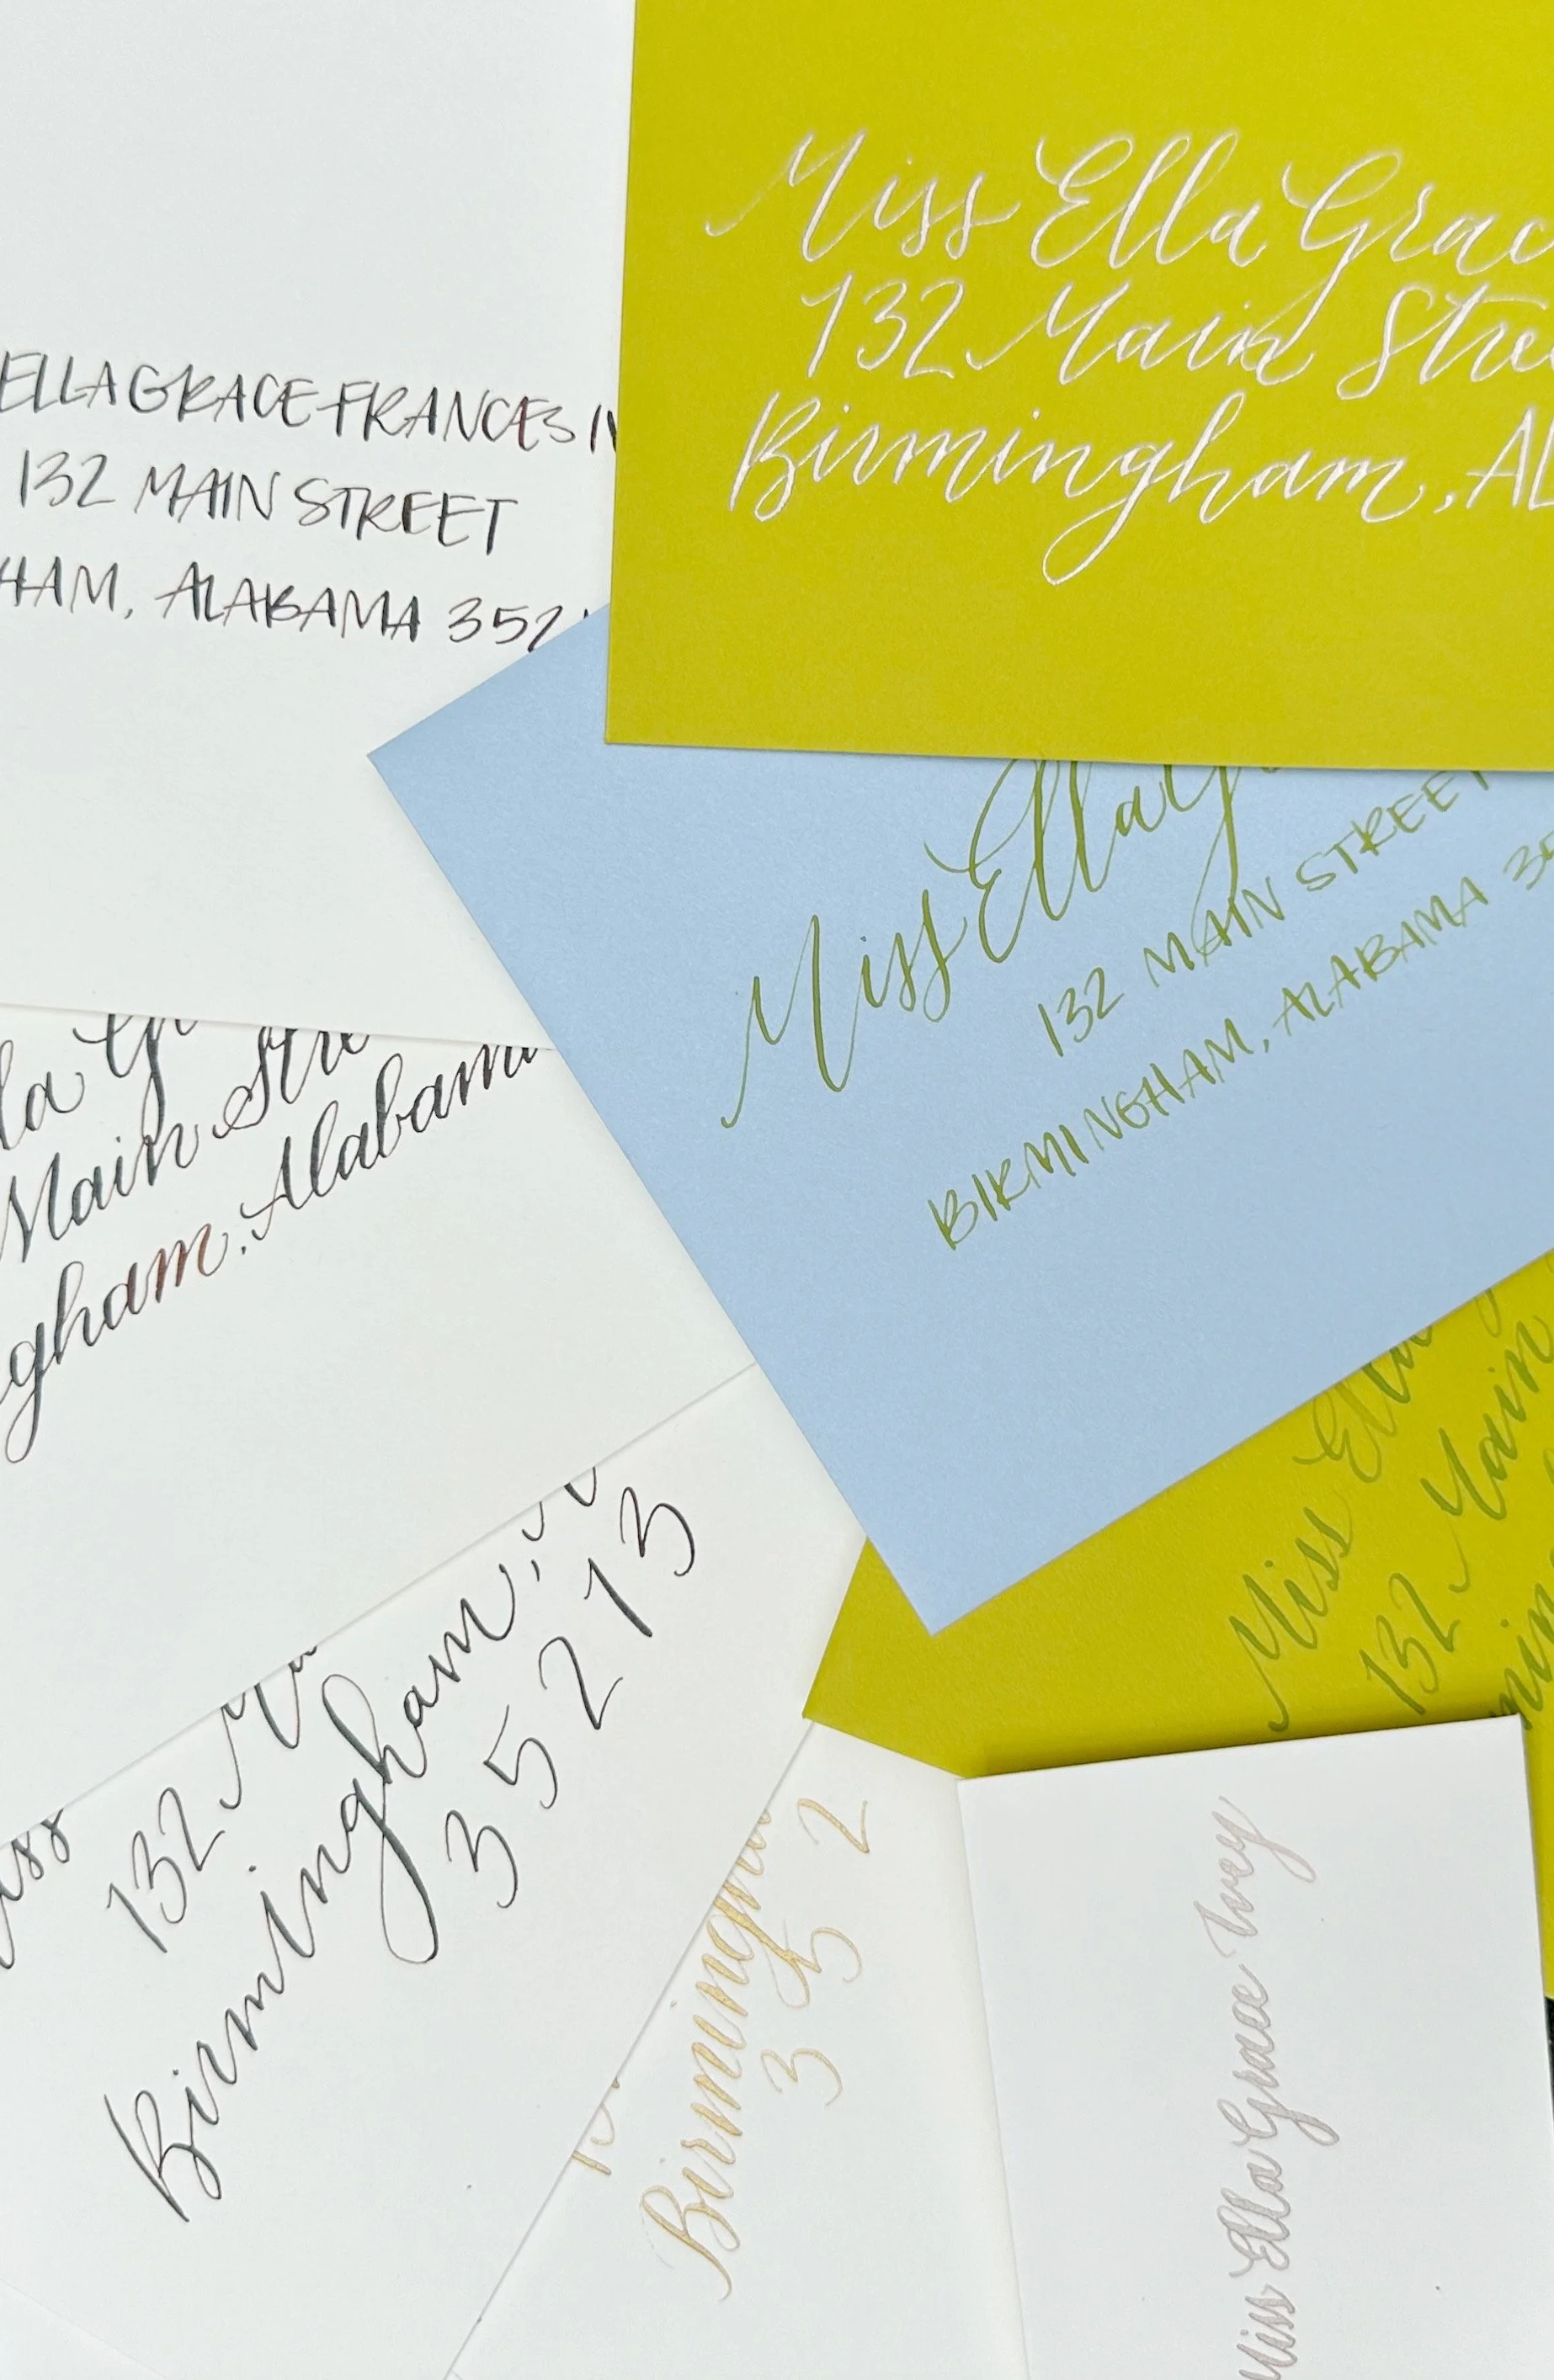 ELLA GRACE FRANCES
132 MAIN STREET
HAM, ALABAMA 352
Miss Ella Grac
132 Main Stree
Birmingham, AL
Miss Ella G
132 MAIN STREET
BIRMINGHAM, ALABAMA 35
la Gr
Main Stre
gham, Alabama
Miss Ella
132 Main
iss
132 Ma
Birmingham,
35213
Birmingham
352
Miss Ella Grace Ivey